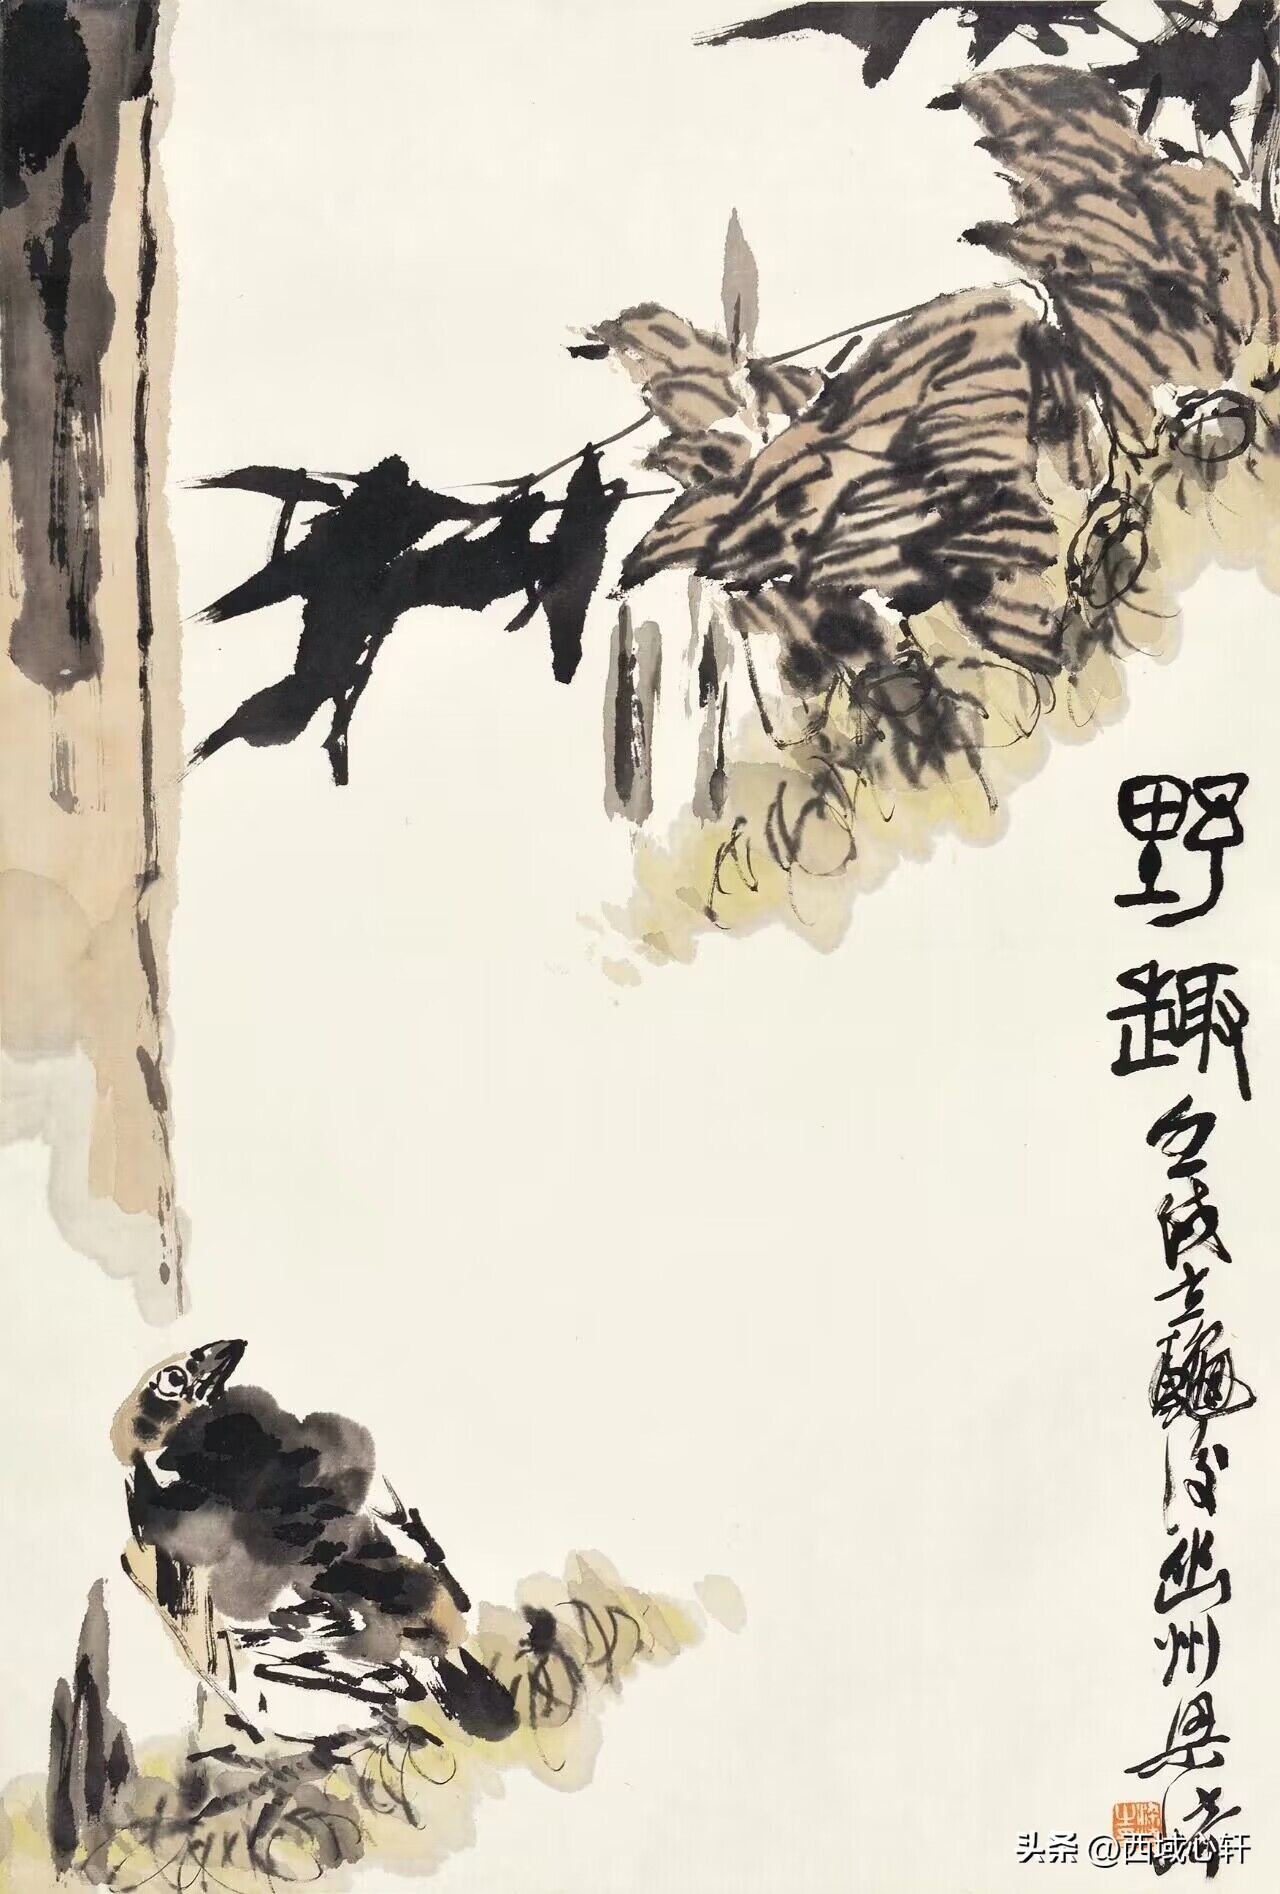 野趣
壬戌立龝後幽州梁
头条 @西域心轩